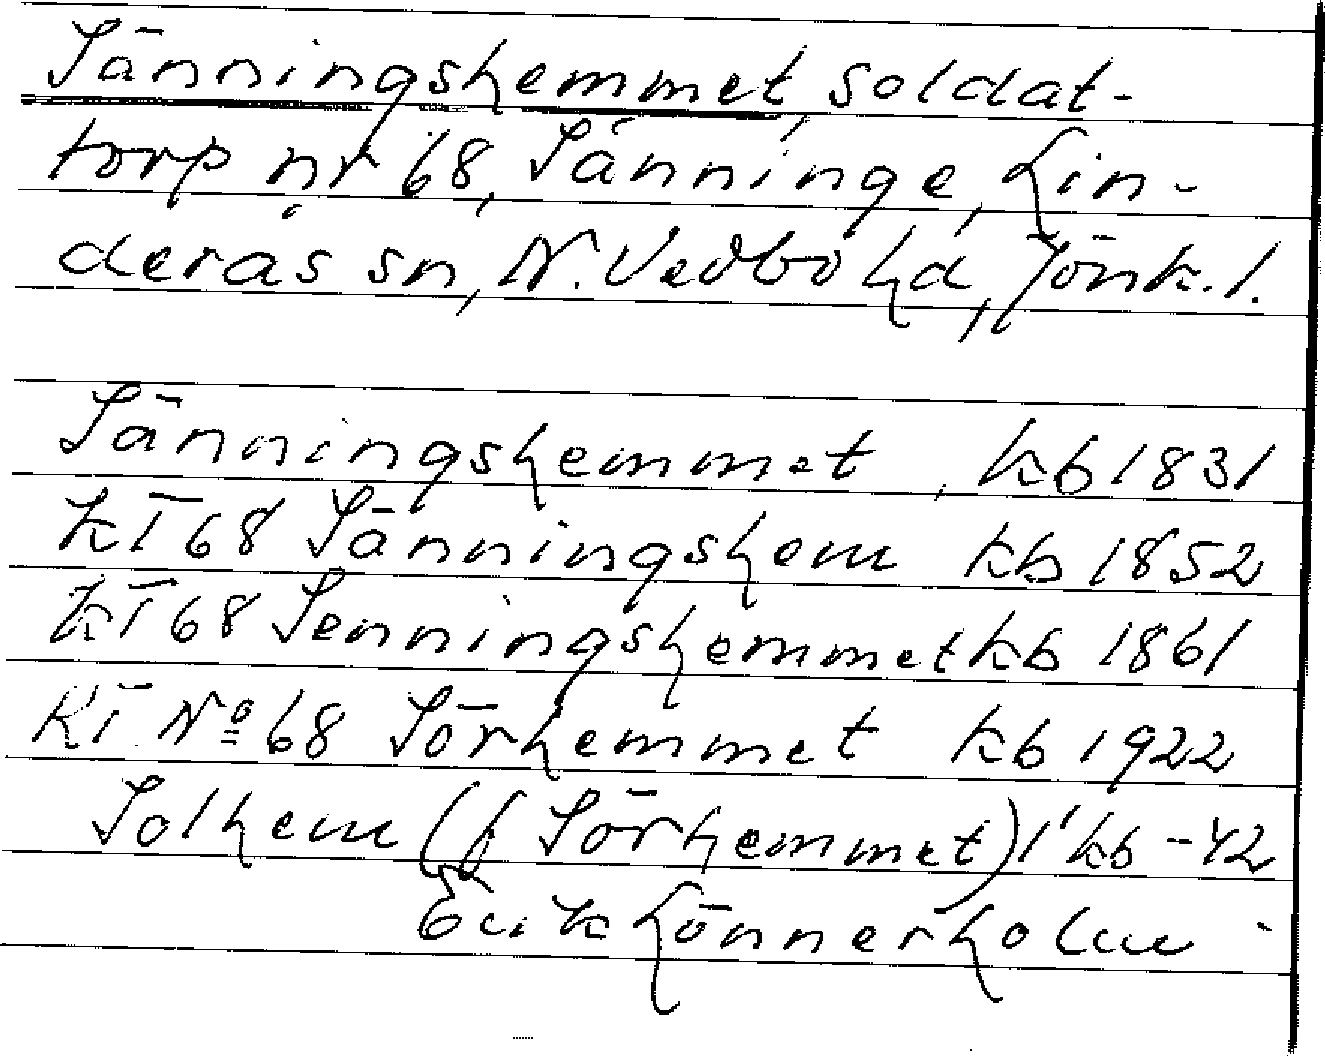 Sänningshemmet, soldat-
torp nr 68, Sänninge, Lin-
derås sn, N. Vedbo hd, Jönk. l.
Sänningshemmet, kb 1831
KT 68 Sänningshem kb 1852
KT 68 Senningshemmet kb 1861
KT Nº 68 Sörhemmet kb 1922
Solhem (f Sörhemmet) i kb -42
Erik Lönnerholm